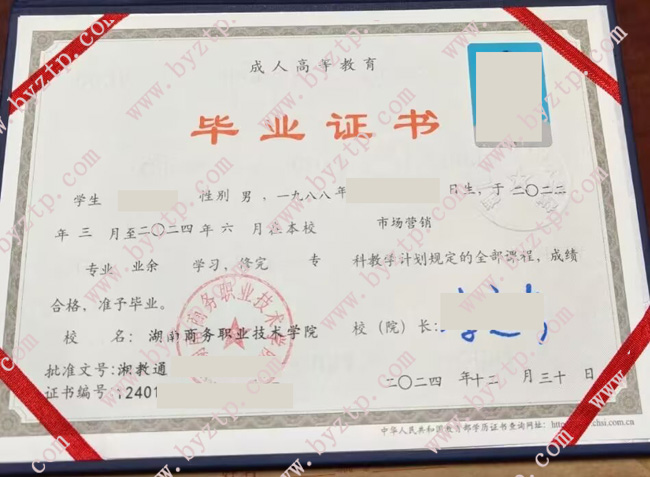 成人高等教育
毕业证书
学生 性别 男，一九八八年 日生，于 二〇二二
年 三 月至二〇二四年 六 月在本校 市场营销
专业 业余 学习，修完 专 科教学计划规定的全部课程，成绩
合格，准予毕业。
校 名：湖南商务职业技术学院 校（院）长：
批准文号：湘教通
证书编号：12401
二〇二四 年十二 月三十 日
中华人民共和国教育部学历证书查询网址：http chsi.com.cn
湖南商务职业技术学院
www.byztp.com